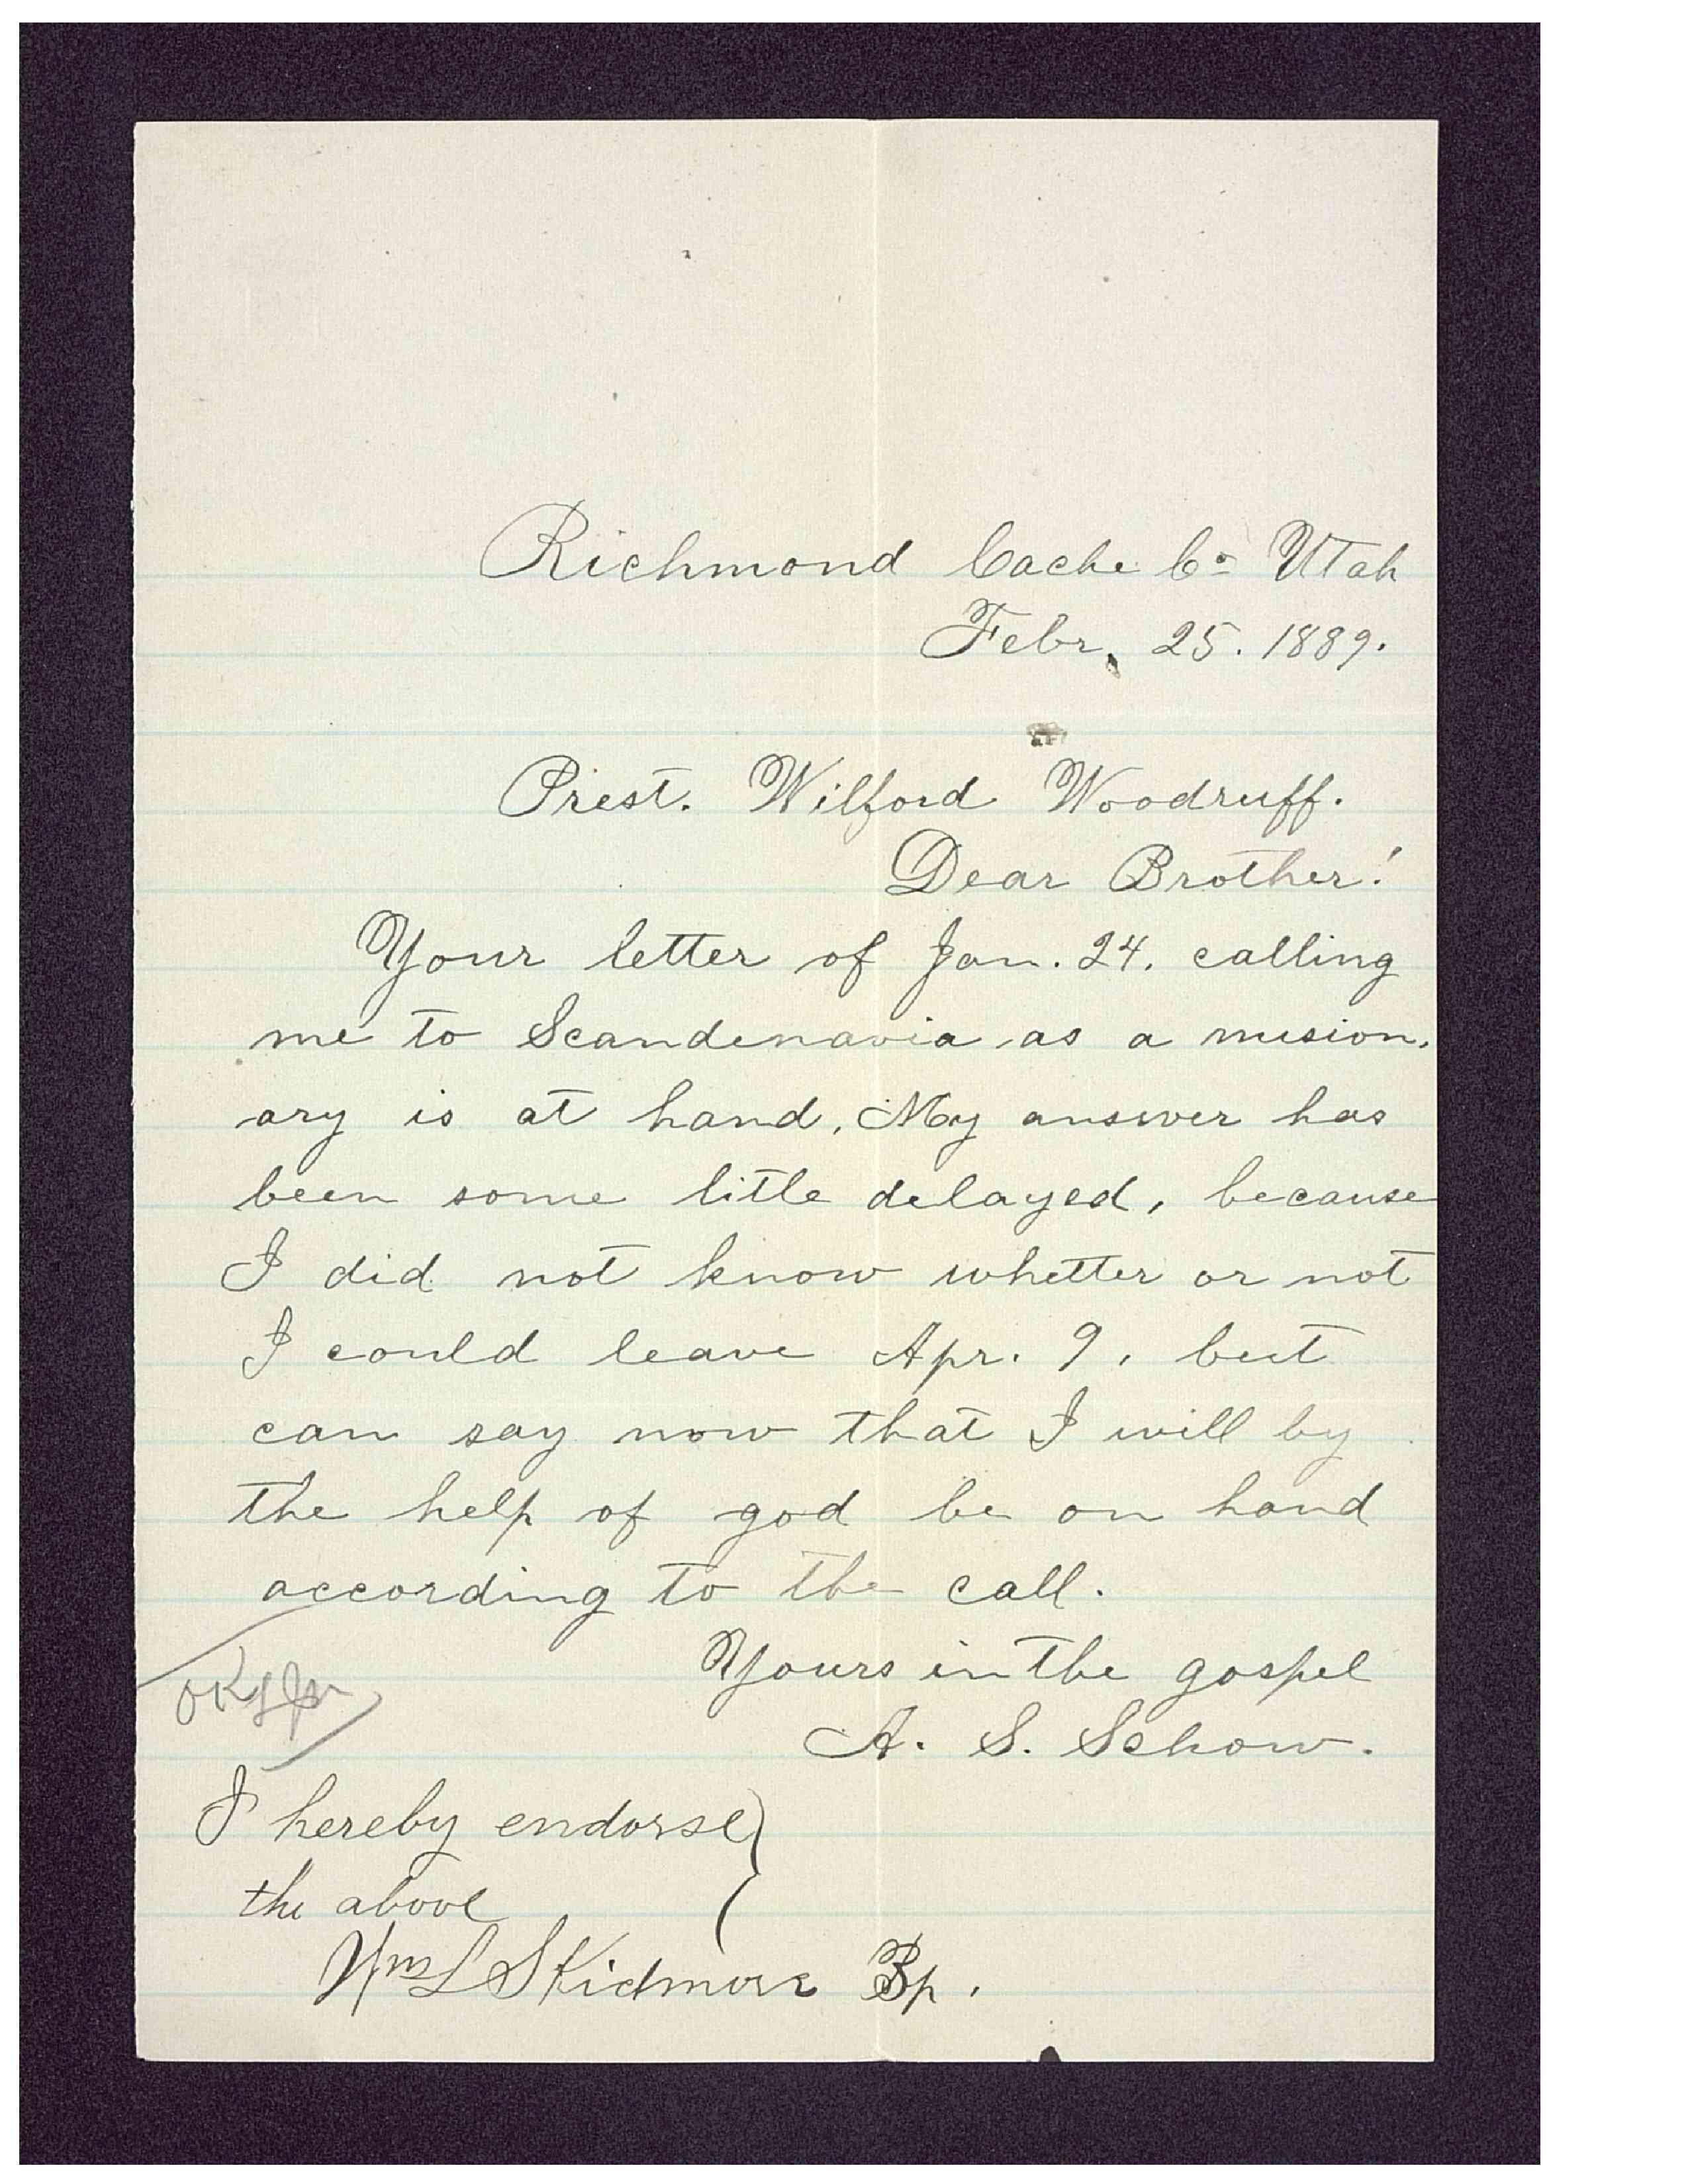 Richmond Cache Co Utah
Febr. 25. 1889.
Prest. Wilford Woodruff.
Dear Brother!
Your letter of Jan. 24. calling
me to Scandenavia as a mision-
ary is at hand. My answer has
been some little delayed, because
I did not know whetter or not
I could leave Apr. 9, but
can say now that I will by
the help of god be on hand
according to the call.
Yours in the gospel
A. S. Schow.
OK
I hereby endorse
the above
Wm L Skidmore Bp.